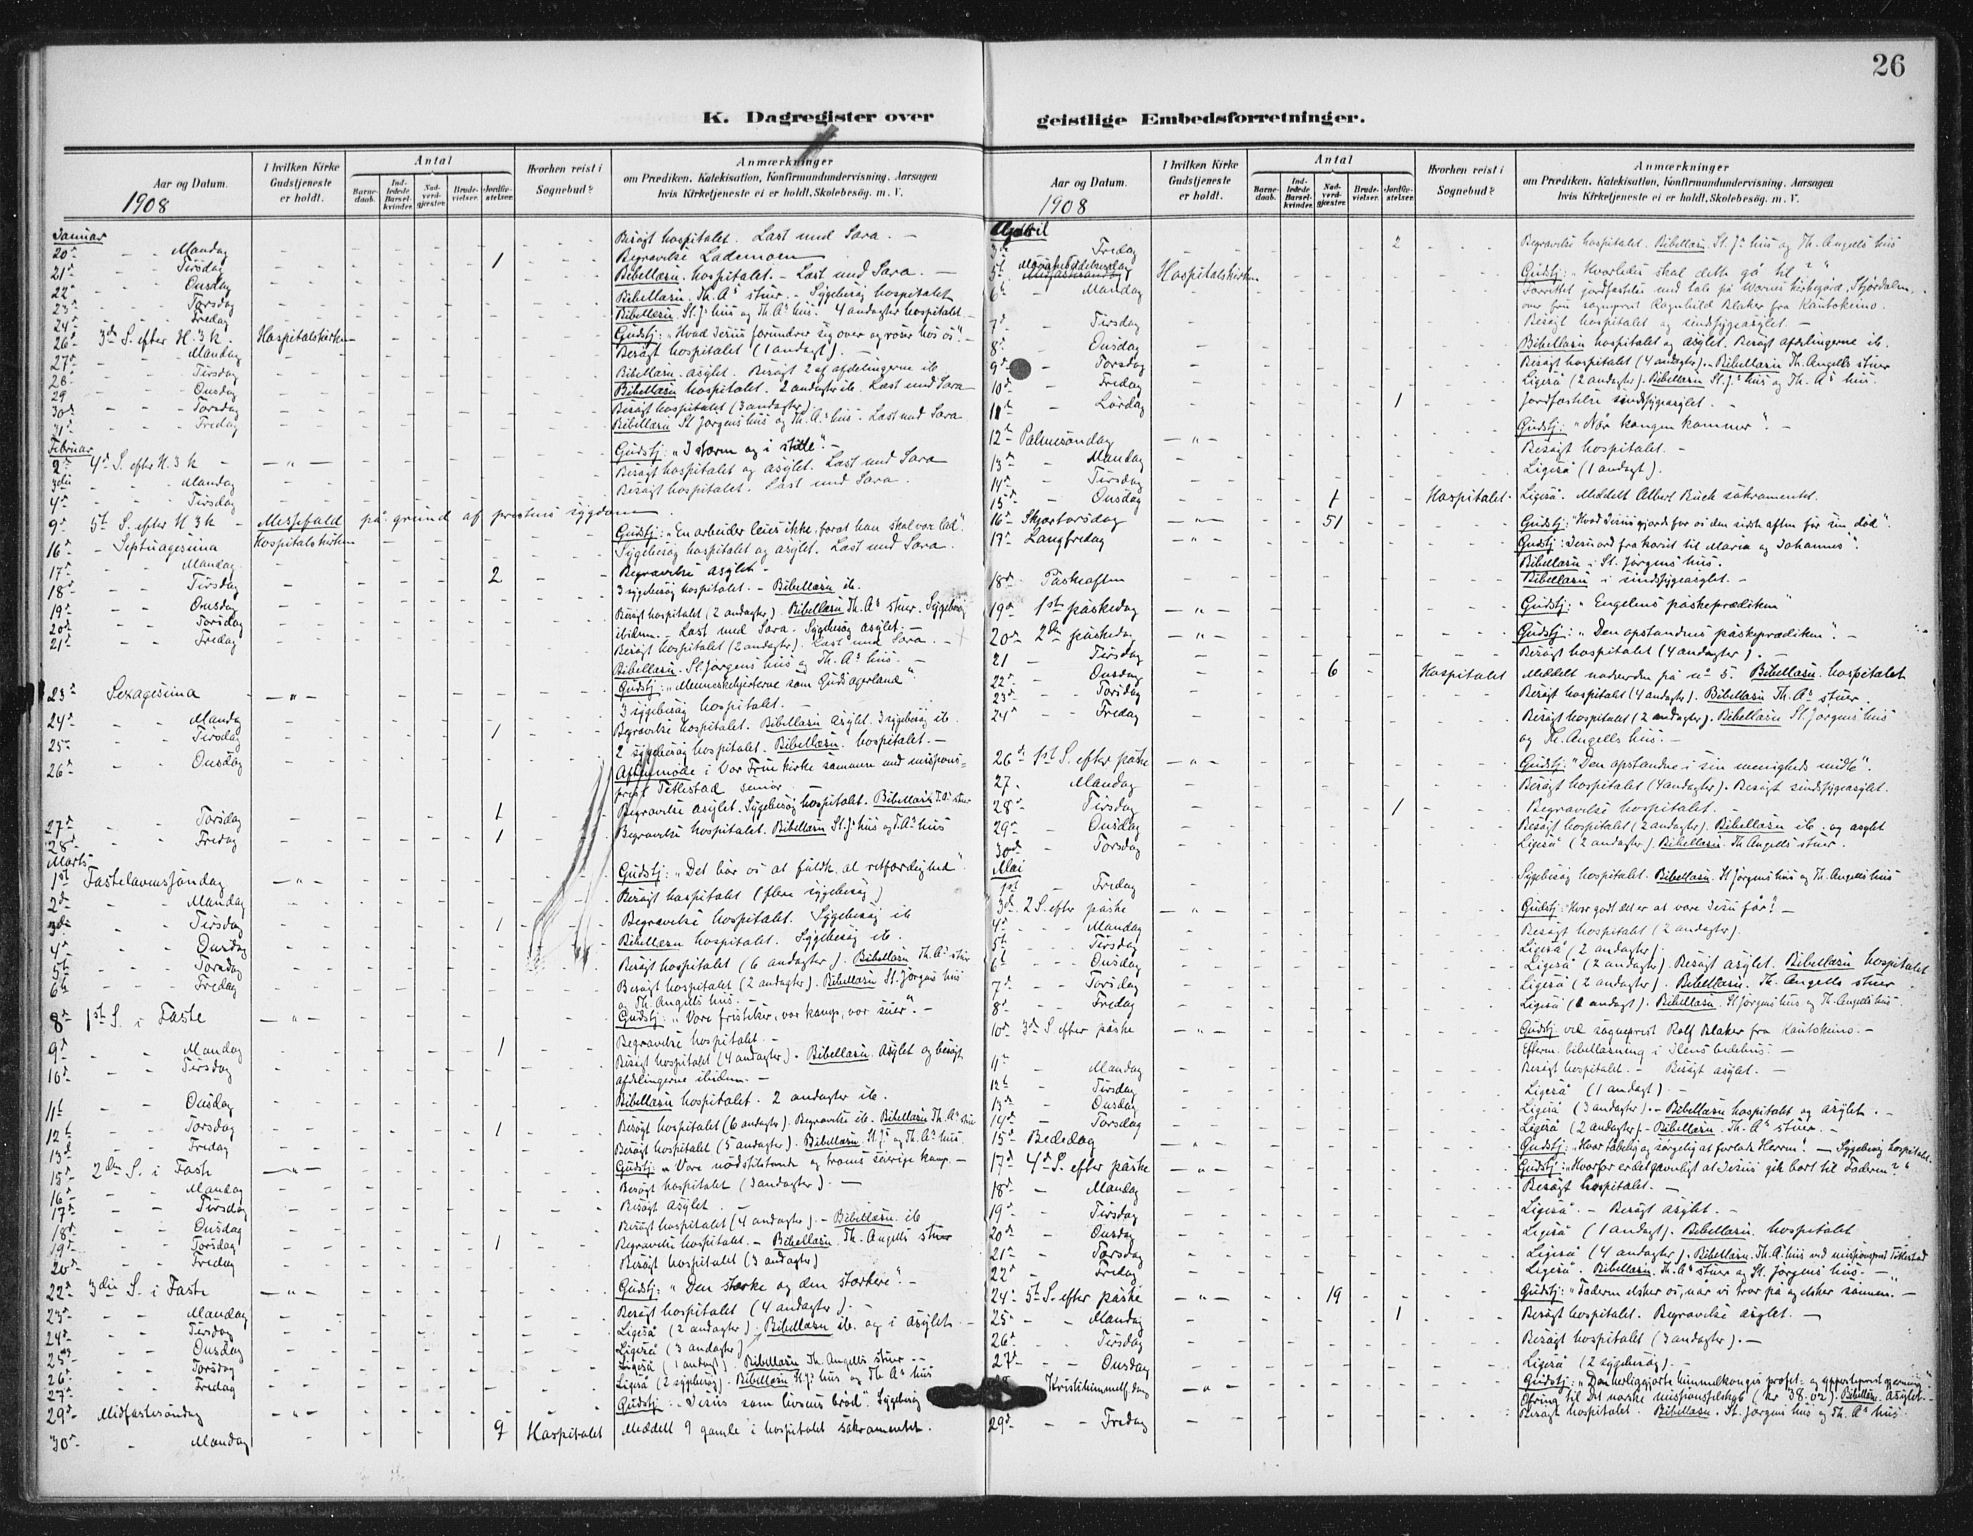 26
K. Dagregister over
geistlige Embedsforretninger.
Aar og Datum.
I hvilken Kirke Gudstjeneste er holdt.
Antal
Barnedaab.
Indledede Barselkvinder.
Nadverdgjester.
Brudevielser.
Jordfæstelser.
Hvorhen reist i Sognebud?
Anmærkninger
om Prædiken, Katekisation, Konfirmandundervisning, Aarsagen
hvis Kirketjeneste ei er holdt, Skolebesøg, m. V.
1908
Januar
20de Mandag Besøgt hospitalet. Læst med Sara.
21 Tirsdag 1 Begravelse Lademoen
22 Onsdag Bibellæsn. hospitalet. - Læst med Sara.
23 Torsdag Bibellæsn. Th. A's stuer. - Sygebesøg hospitalet
24 Fredag Bibellæsn. St. J.s hus og Th. A's hus. 4 andagter hospitalet
26 3die S. efter H. 3 k. Hospitalskirken Gudstj: "Hvad Jesus forundrer sig over og roser hos os".
27 Mandag Besøgt hospitalet (1 andagt).
28 Tirsdag Bibellæsn. asylet. Besøgt 2 af afdelingerne ib
29 Onsdag Bibellæsn. hospitalet. 2 andagter ib. Læst med Sara
30 Torsdag Besøgt hospitalet (3 andagter)
31 Fredag Bibellæsn St Jørgens hus og Th. A's hus. Læst med Sara
Februar
2 4de S. efter H. 3 k - " - Gudstj: "I storm og i stille".
3die Mandag Besøgt hospitalet og asylet. Læst med Sara
4 Tirsdag Besøgt hospitalet. Læst med Sara.
9 5te S. efter H 3 k - Messefald på grund af prestens sygdom
16 Septuagesima Hospitalskirken Gudstj:
17 Mandag Sygebesøg hospitalet og asylet. Læst med Sara.
18 Tirsdag 2 Begravelse asylet
19 Onsdag 3 sygebesøg hospitalet. - Bibellæsn. ib.
20 Torsdag Besøgt hospitalet (2 andagter). Bibellæsn Th. A's stuer. Sygebesøg
ibidem. - Læst med Sara. Sygebesøg asylet.
21 Fredag Besøgt hospitalet (2 andagter). Læst med Sara
Bibellæsn. St. Jørgens hus og Th. A's hus.
23 Sexagesima - " - Gudstj: "Menneskehjerterne som Guds agerland".
24 Mandag 3 sygebesøg hospitalet.
25 Tirsdag 1 Begravelse hospitalet. Bibellæsn asylet. 3 sygebesøg ib.
26 Onsdag 2 sygebesøg hospitalet. Bibellæsn. hospitalet.
Aftenmøde i Vor Frue kirke sammen med missions-
prest Tetlestad senior
27 Torsdag 1 Begravelse asylet. Sygebesøg hospitalet. Bibellæsn T. A's stuer
28 Fredag 1 Begravelse hospitalet. Bibellæsn St. J.s hus og T. A's hus
Marts
1ste Fastelavenssøndag - " - Gudstj: "Det bør os at fuldk. al retfærdighed".
2den Mandag Besøgt hospitalet (flere sygebesøg)
3die Tirsdag 1 Begravelse hospitalet. Sygebesøg ib
4 Onsdag Bibellæsn hospitalet. Sygebesøg ib.
5te Torsdag Besøgt hospitalet (6 andagter). Bibellæsn Th. A's stuer
6te Fredag Besøgt hospitalet (2 andagter). Bibellæsn St. Jørgens hus
og Th. Angells hus.
8 1ste S. i Faste - " - Gudstj: "Vore fristelser, vor kamp, vor seier".
9 Mandag 1 Begravelse hospitalet.
10 Tirsdag Besøgt hospitalet (4 andagter). Bibellæsn. Asylet og besøgt
afdelingerne ibidem.
11te Onsdag Bibellæsn hospitalet. 2 andagter ib.
12te Torsdag 1 Besøgt hospitalet (6 andagter). Begravelse ib. Bibellæsn Th. A's stuer
13 Fredag Besøgt hospitalet (5 andagter). Bibellæsn. St. J.s og Th. A's hus.
15 2den S. i Faste - " - Gudstj: "Vore nødstilstande og troens seierrige kamp.
16 Mandag Besøgt hospitalet (3 andagter).
17 Tirsdag Besøgt Asylet
18 Onsdag Besøgt hospitalet (4 andagter). - Bibellæsn. ib
19 Torsdag 1 Begravelse hospitalet. - Bibellæsn. Th. Angells stuer
20 Fredag Besøgt hospitalet (3 andagter)
22 3die S. i Faste - " - Gudstj: "Den stærke og den stærkere".
23 Mandag Besøgt hospitalet (4 andagter).
24 Tirsdag Ligeså (2 andagter). Bibellæsn ib. og i asylet.
25 Onsdag Ligeså (3 andagter)
26 Torsdag Ligeså (1 andagt). Bibellæsn Th. Angells stuer
27 Fredag Ligeså (2 sygebesøg). Bibellæsn St. J.s hus og Th A's hus
29 Midfastesøndag - " - Gudstj: "Jesus som livsens brød". Sygebesøg
30 Mandag 9 Hospitalet Meddelt 9 gamle i hospitalet sakramentet.
Aar og Datum.
I hvilken Kirke Gudstjeneste er holdt.
Antal
Barnedaab.
Indledede Barselkvinder.
Nadverdgjester.
Brudevielser.
Jordfæstelser.
Hvorhen reist i Sognebud?
Anmærkninger
om Prædiken, Katekisation, Konfirmandundervisning, Aarsagen
hvis Kirketjeneste ei er holdt, Skolebesøg, m. V.
1908
April
3die Fredag 2 Begravelse hospitalet. Bibellæsn. St. J.s hus og Th. Angells hus
5te Mariæ budskabsdag Hospitalskirken Gudstj: "Hvorledes skal dette gå til?"
6te Mandag Forrettet jordfæstelse med tale på Værnes kirkegård, Stjørdalen
over fru sogneprest Ragnhild Blaker fra Kautokeino.
7 Tirsdag Besøgt hospitalet og sindsygeasylet.
8 Onsdag Bibellæsn hospitalet og asylet. Besøgt afdelingerne ib.
9 Torsdag Besøgt hospitalet (4 andagter). Bibellæsn Th. Angells stuer
10 Fredag Ligeså (2 andagter). Bibellæsn St. J.s hus og Th. A's hus.
11te Lørdag 1 Jordfæstelse sindsygeasylet.
12te Palmesøndag - " - Gudstj: "Når kongen kommer".
13 Mandag Besøgt hospitalet.
14 Tirsdag Ligeså (1 andagt).
15 Onsdag 1 Hospitalet. Ligeså. Meddelt Albert Buch sakramentet.
16 Skjærtorsdag - " - 51 Gudstj: "Hvad Jesus gjorde for os den sidste aften før sin død".
17 Langfredag Gudstj: Jesu ord fra korset til Maria og Johannes".
Bibellæsn i St. Jørgens hus.
18 Påskeaften Bibellæsn i sindsygeasylet.
19 1ste påskedag - " - Gudstj: "Engelens påskeprædiken"
20 2den påskedag - " - Gudstj: "Den opstandnes påskeprædiken".
21 Tirsdag Besøgt hospitalet (4 andagter).
22 Onsdag 6 Hospitalet Meddelt nadverden på no 5. Bibellæsn. hospitalet
23 Torsdag Besøgt hospitalet (4 andagter). Bibellæsn Th. A's stuer
24 Fredag Besøgt hospitalet (2 andagter). Bibellæsn St. Jørgens hus
og Th. Angells hus.
26 1ste S. efter påske Gudstj: "Den opstandne i sin menigheds midte".
27 Mandag Besøgt hospitalet (4 andagter). Besøgt sindsygeasylet.
28 Tirsdag 1 Begravelse hospitalet.
29 Onsdag Besøgt hospitalet (2 andagter). Bibellæsn ib. og asylet
30 Torsdag Ligeså (2 andagter). Bibellæsn. Th. Angells stuer.
Mai
1ste Fredag Sygebesøg hospitalet. Bibellæsn. St Jørgens hus og Th. Angells hus
3die 2 S. efter påske - " - Gudstj: "Hvor godt det er at være Jesu får!
4 Mandag Besøgt hospitalet (2 andagter).
5te Tirsdag Ligeså (2 andagter).
6te Onsdag Ligeså (2 andagter). Besøgt asylet. Bibellæsn hospitalet
7 Torsdag Ligeså (2 andagter). Bibellæsn. Th. Angells stuer
8 Fredag Ligeså (1 andagt). Bibellæsn. St Jørgens hus og Th. Angells hus.
10 3die S. efter påske - " - Gudstj: ved sogneprest Rolf Blaker fra Kautokeino.
Efterm. bibellæsning i Ilens bedehus.
11 Mandag Besøgt hospitalet. - Besøgt asylet.
12te Tirsdag Ligeså (1 andagt).
13 Onsdag Ligeså (3 andagter). - Bibellæsn hospitalet og asylet.
14 Torsdag Ligeså (2 andagter). - Bibellæsn. Th. A's stuer.
15 Bededag Gudstj: "Hvor tåbelig og sørgelig at forlade Herren! - Sygebesøg hospitalet.
17 4de S. efter påske - " - Gudstj: "Hvorfor er det gavnligt at Jesus gik bort til Faderen?"
18 Mandag Besøgt hospitalet.
19 Tirsdag Ligeså. - Besøgt asylet.
20 Onsdag Ligeså (1 andagt). Bibellæsn. hospitalet
21 Torsdag Ligeså (4 andagter). Bibellæsn. Th. A's hus ved missionsprest Tetlestad
22 Fredag Ligeså. Bibellæsn. Th. A's stuer og St. Jørgens hus.
24 5te S. efter påske - " - 19 Gudstj: "Faderen elsker os, når vi tror på og elsker sønnen".
25 Mandag 1 Besøgt hospitalet. Begravelse asylet.
26 Tirsdag Besøgt hospitalet (3 andagter).
27 Onsdag Ligeså (2 sygebesøg).
Kristi himmelf.dag - " - Gudstj: "Den herliggjorte himmelkonges
Ofring til Det norske missionsselskab (kr 38.02). Bibellæsn. asylet.
29 Fredag Besøgt hospitalet. Bibellæsn. St. Jørgens hus og Th. A's hus